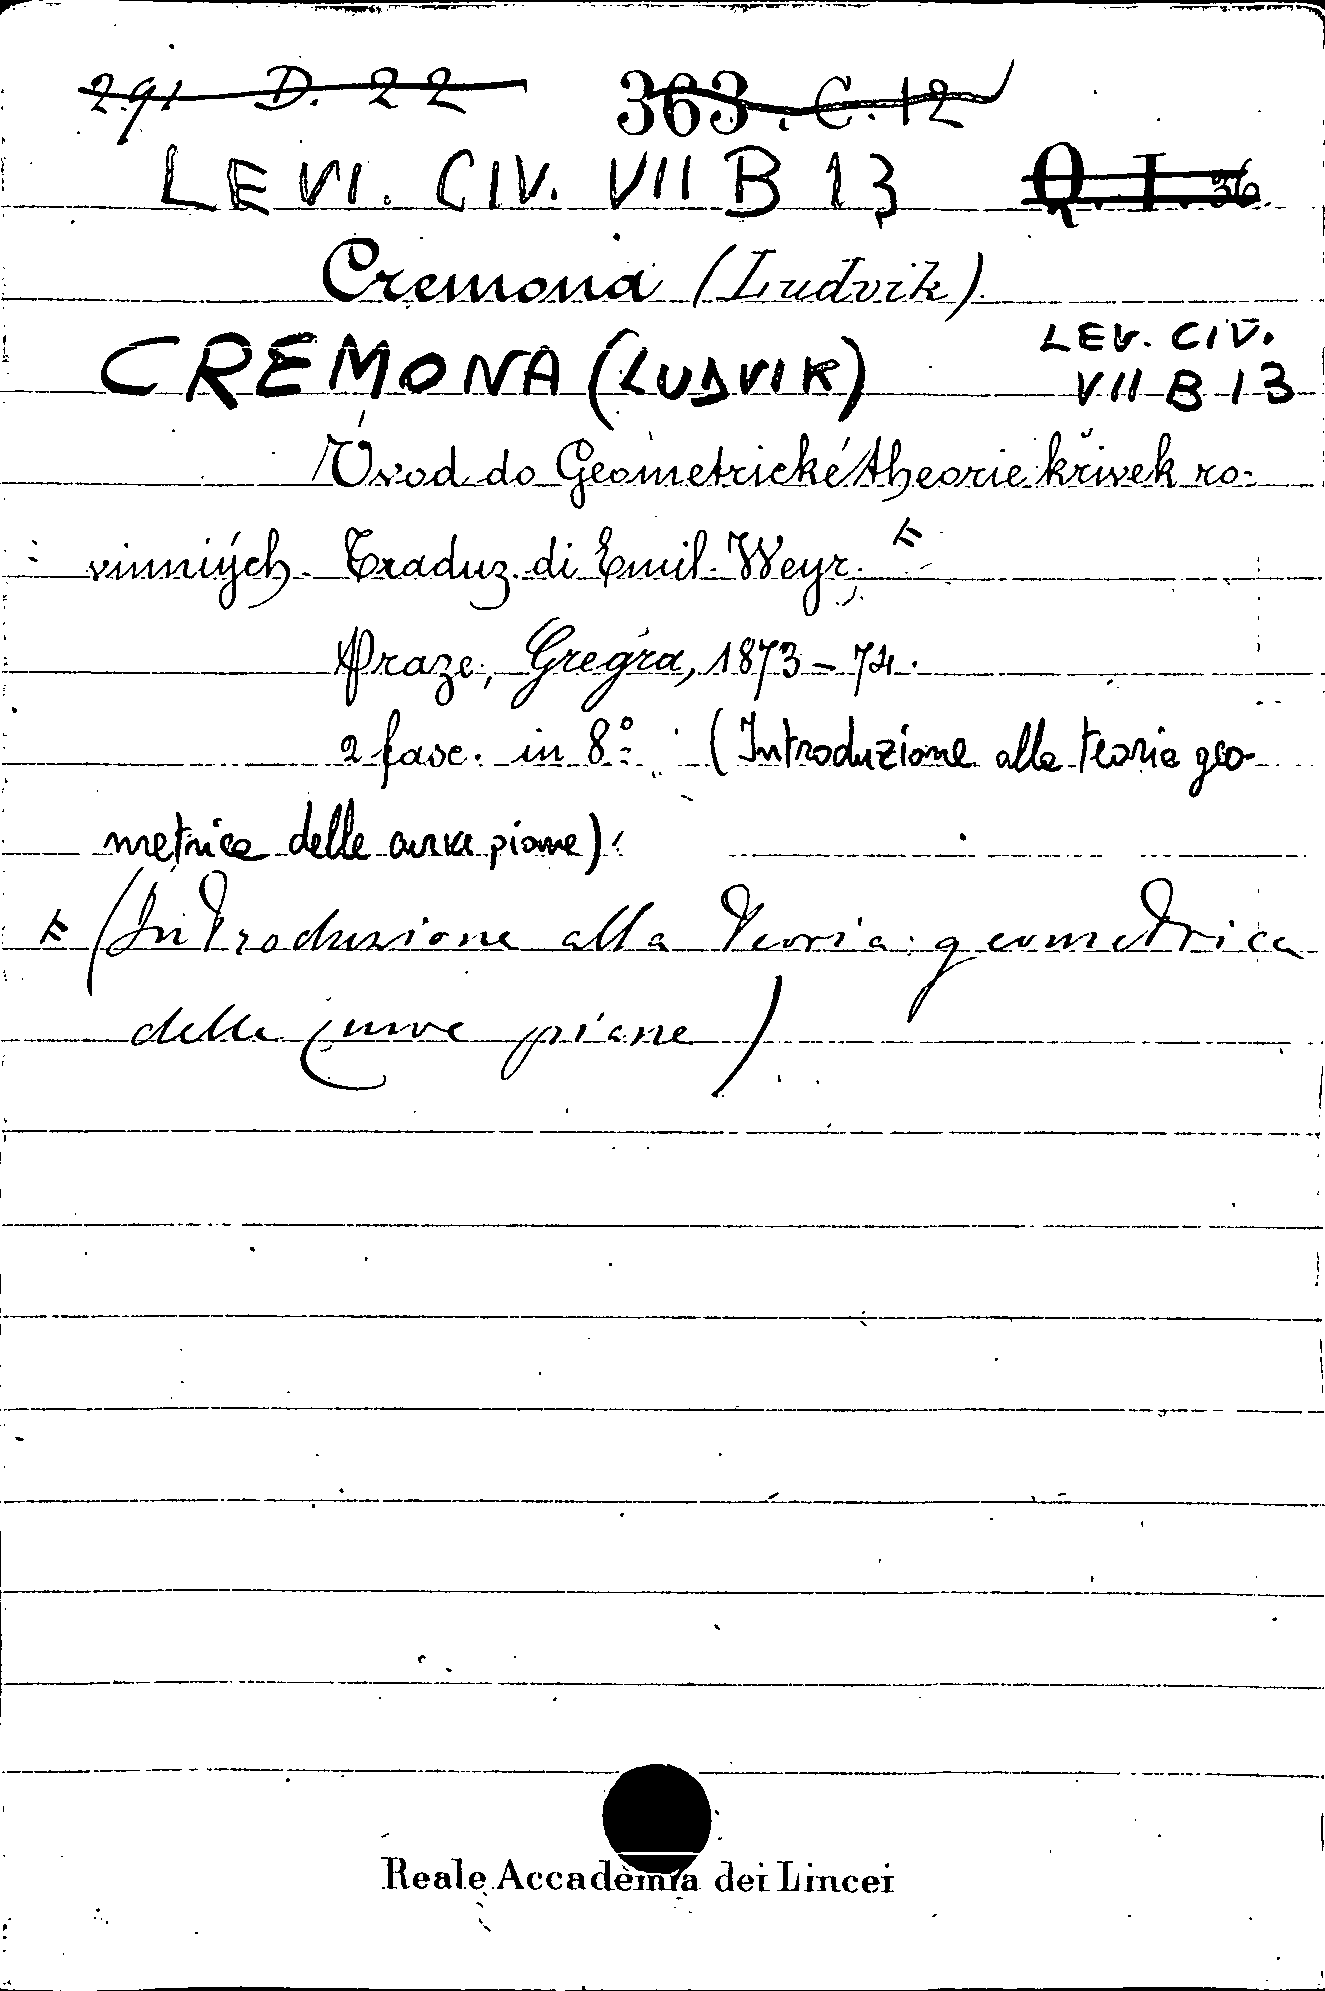 291 D. 22 363. C. 12
LEVI. CIV. VII B 13 Q. I. 36.
Cremona (Ludvik)
CREMONA (LUDVIK) LEV. CIV.
VII B 13
Úvod do Geometrické theorie křivek ro-
vinniých. Traduz. di Emil. Weyr.
Praze, Gregra, 1873-74.
2 fasc. in 8.° (Introduzione alla teoria geo-
metrica delle curve piane).
(Introduzione alla Teoria geometrica
delle Curve piane)
Reale Accademia dei Lincei